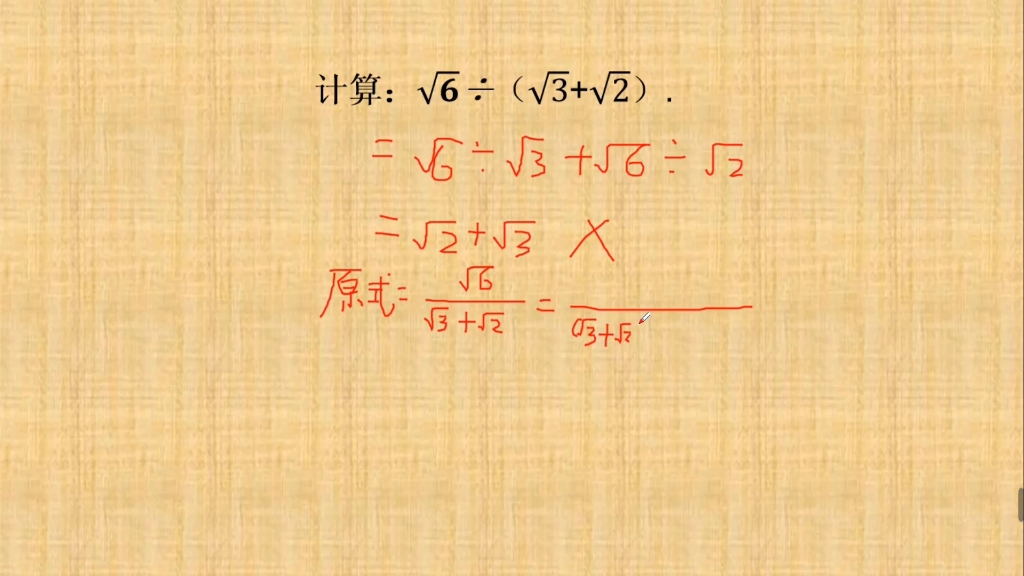 计算：√6÷（√3+√2）.
=√6÷√3+√6÷√2
=√2+√3 X
原式=√6/(√3+√2)=/(√3+√2